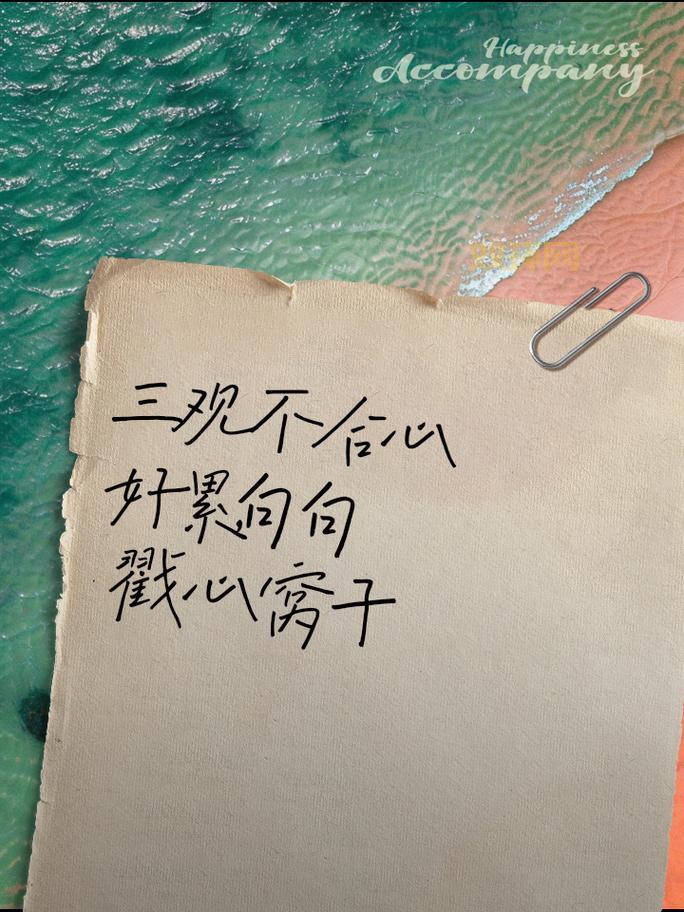 Happiness
Accompany
三观不合心
好累句句
戳心窝子